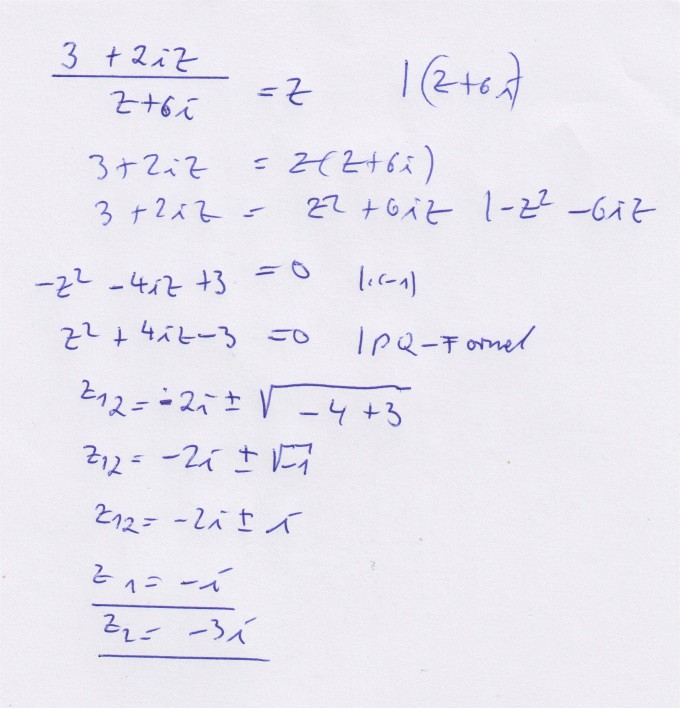 (3 + 2iz)/(z+6i) = z |(z+6i)
3+2iz = z(z+6i)
3 + 2iz = z² + 6iz |-z² -6iz
-z² - 4iz +3 = 0 |·(-1)
z² + 4iz - 3 = 0 | PQ-Formel
z₁₂ = -2i ± √(-4 +3)
z₁₂ = -2i ± √-1
z₁₂ = -2i ± i
z₁ = -i
z₂ = -3i